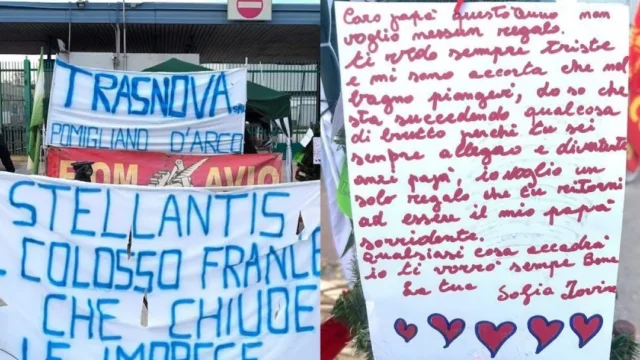 TRASNOVA
POMIGLIANO D'ARCO
FIOM AVIO
STELLANTIS
COLOSSO FRANCO
CHE CHIUDE
LE IMPRESE
Caro papà quest'anno non
voglio nessun regalo.
ti vedo sempre triste
e mi sono accorta che nel
bagno piangevi, do so che
sta succedendo qualcosa
di brutto perché tu sei
sempre allegro e divertente
papà, io voglio un
solo regalo che tu ritorni
ad essere il mio papà
sorridente.
Qualsiasi cosa accadrà
io ti vorrò sempre Bene
La tua Sofia Iovine